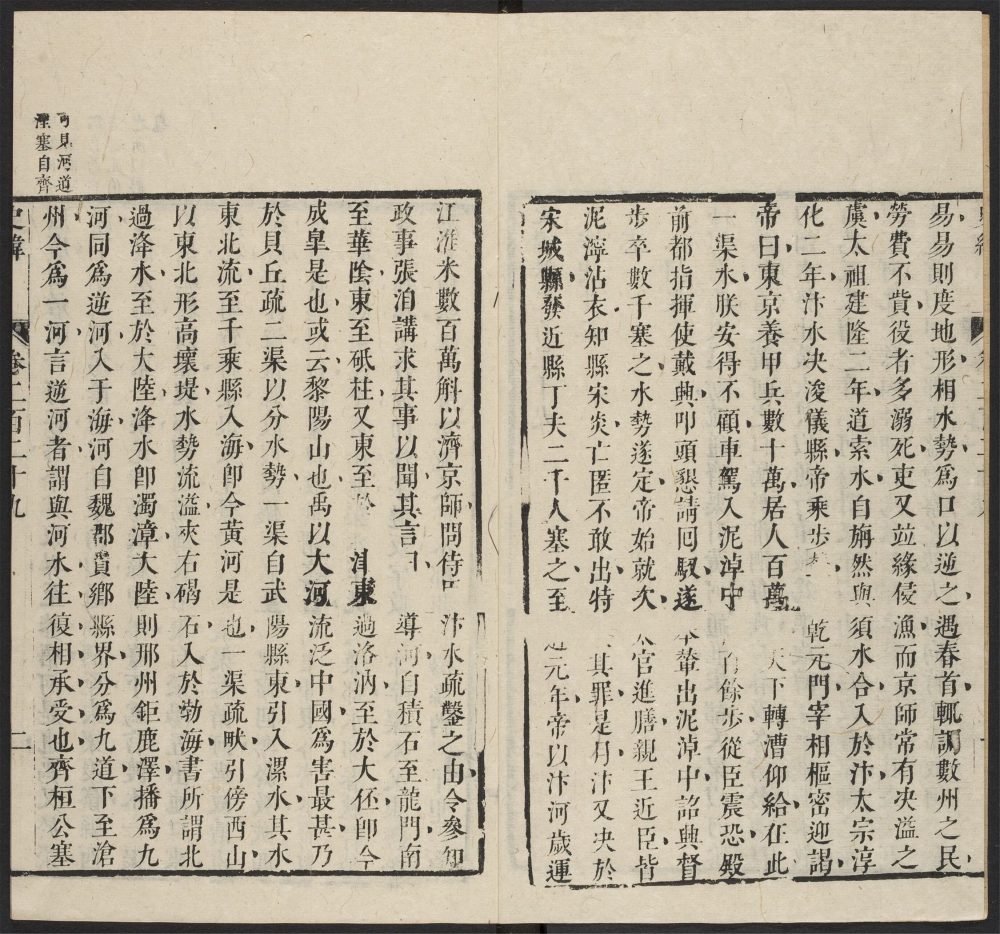 易易則度地形相水勢爲口以逆之遇春首輒調數州之民
勞費不貲役者多溺死吏又並緣侵漁而京師常有决溢之
虞太祖建隆二年道索水自旃然與須水合入於汴太宗淳
化二年汴水决浚儀縣帝乘步 乾元門宰相樞密迎謁
帝曰東京養甲兵數十萬居人百萬 天下轉漕仰給在此
一渠水朕安得不顧車駕入泥淖中 餘步從臣震恐殿
前都指揮使戴興叩頭懇請回馭遂 輦出泥淖中詔興督
步卒數千塞之水勢遂定帝始就次 官進膳親王近臣皆
泥濘沾衣知縣宋炎亡匿不敢出特 其罪是月汴又决於
宋城縣發近縣丁夫二千人塞之至 元年帝以汴河歲運
可見河道
湮塞自齊
江淮米數百萬斛以濟京師問侍 汴水疏鑿之由令參知
政事張洎講求其事以聞其言曰 導河自積石至龍門南
至華陰東至砥柱又東至於 津東過洛汭至於大伾卽今
成皐是也或云黎陽山也禹以大河流泛中國爲害最甚乃
於貝丘疏二渠以分水勢一渠自武陽縣東引入漯水其水
東北流至千乘縣入海卽今黃河是也一渠疏畎引傍西山
以東北形高壤堤水勢流溢夾右碣石入於渤海書所謂北
過洚水至於大陸洚水卽濁漳大陸則邢州鉅鹿澤播爲九
河同爲逆河入于海河自魏郡貴鄉縣界分爲九道下至滄
州今爲一河言逆河者謂與河水往復相承受也齊桓公塞
史緯 卷二百二十九 二